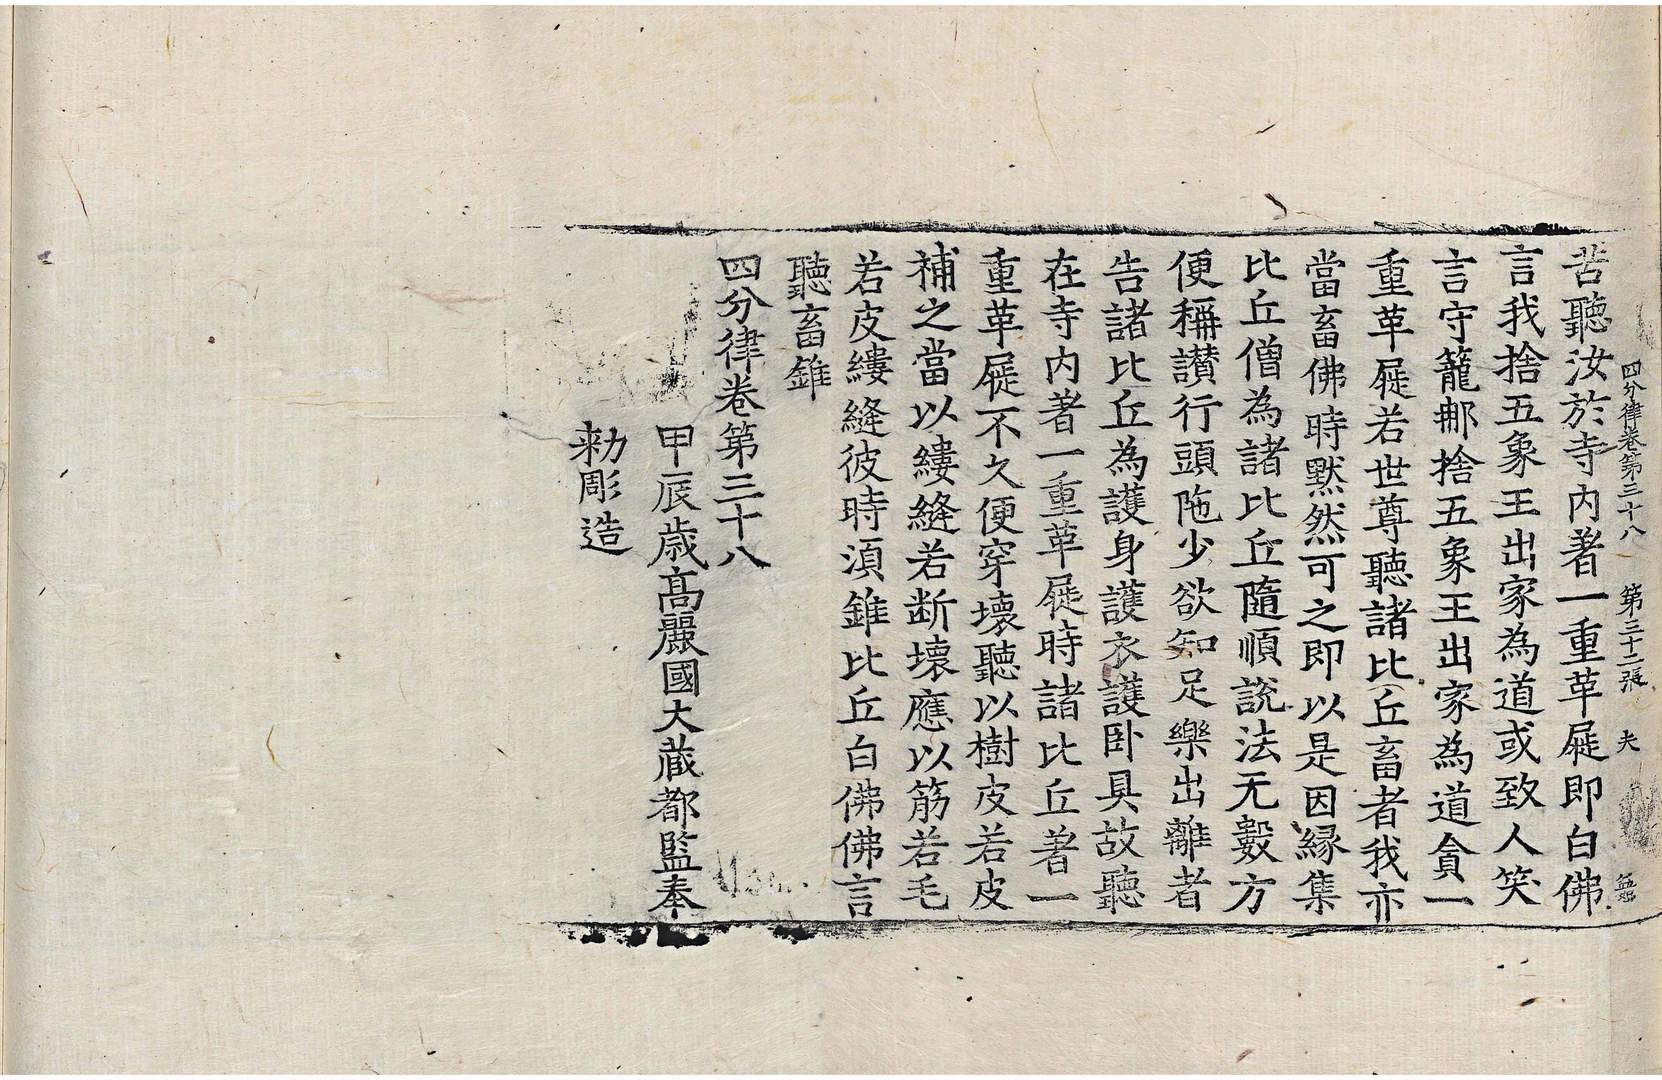 四分律卷第三十八　第三十二張　夫
苦聽汝於寺內著一重革屣即白佛
言我捨五象王出家為道或致人笑
言守籠那捨五象王出家為道貪一
重革屣若世尊聽諸比丘畜者我亦
當畜佛時默然可之即以是因緣集
比丘僧為諸比丘隨順說法无數方
便稱讚行頭陁少欲知足樂出離者
告諸比丘為護身護衣護卧具故聽
在寺內著一重革屣時諸比丘著一
重革屣不久便穿壞聽以樹皮若皮
補之當以縷縫若断壞應以筋若毛
若皮縷縫彼時湏錐比丘白佛佛言
聽畜錐
四分律卷第三十八
甲辰歲高麗國大藏都監奉
勅彫造